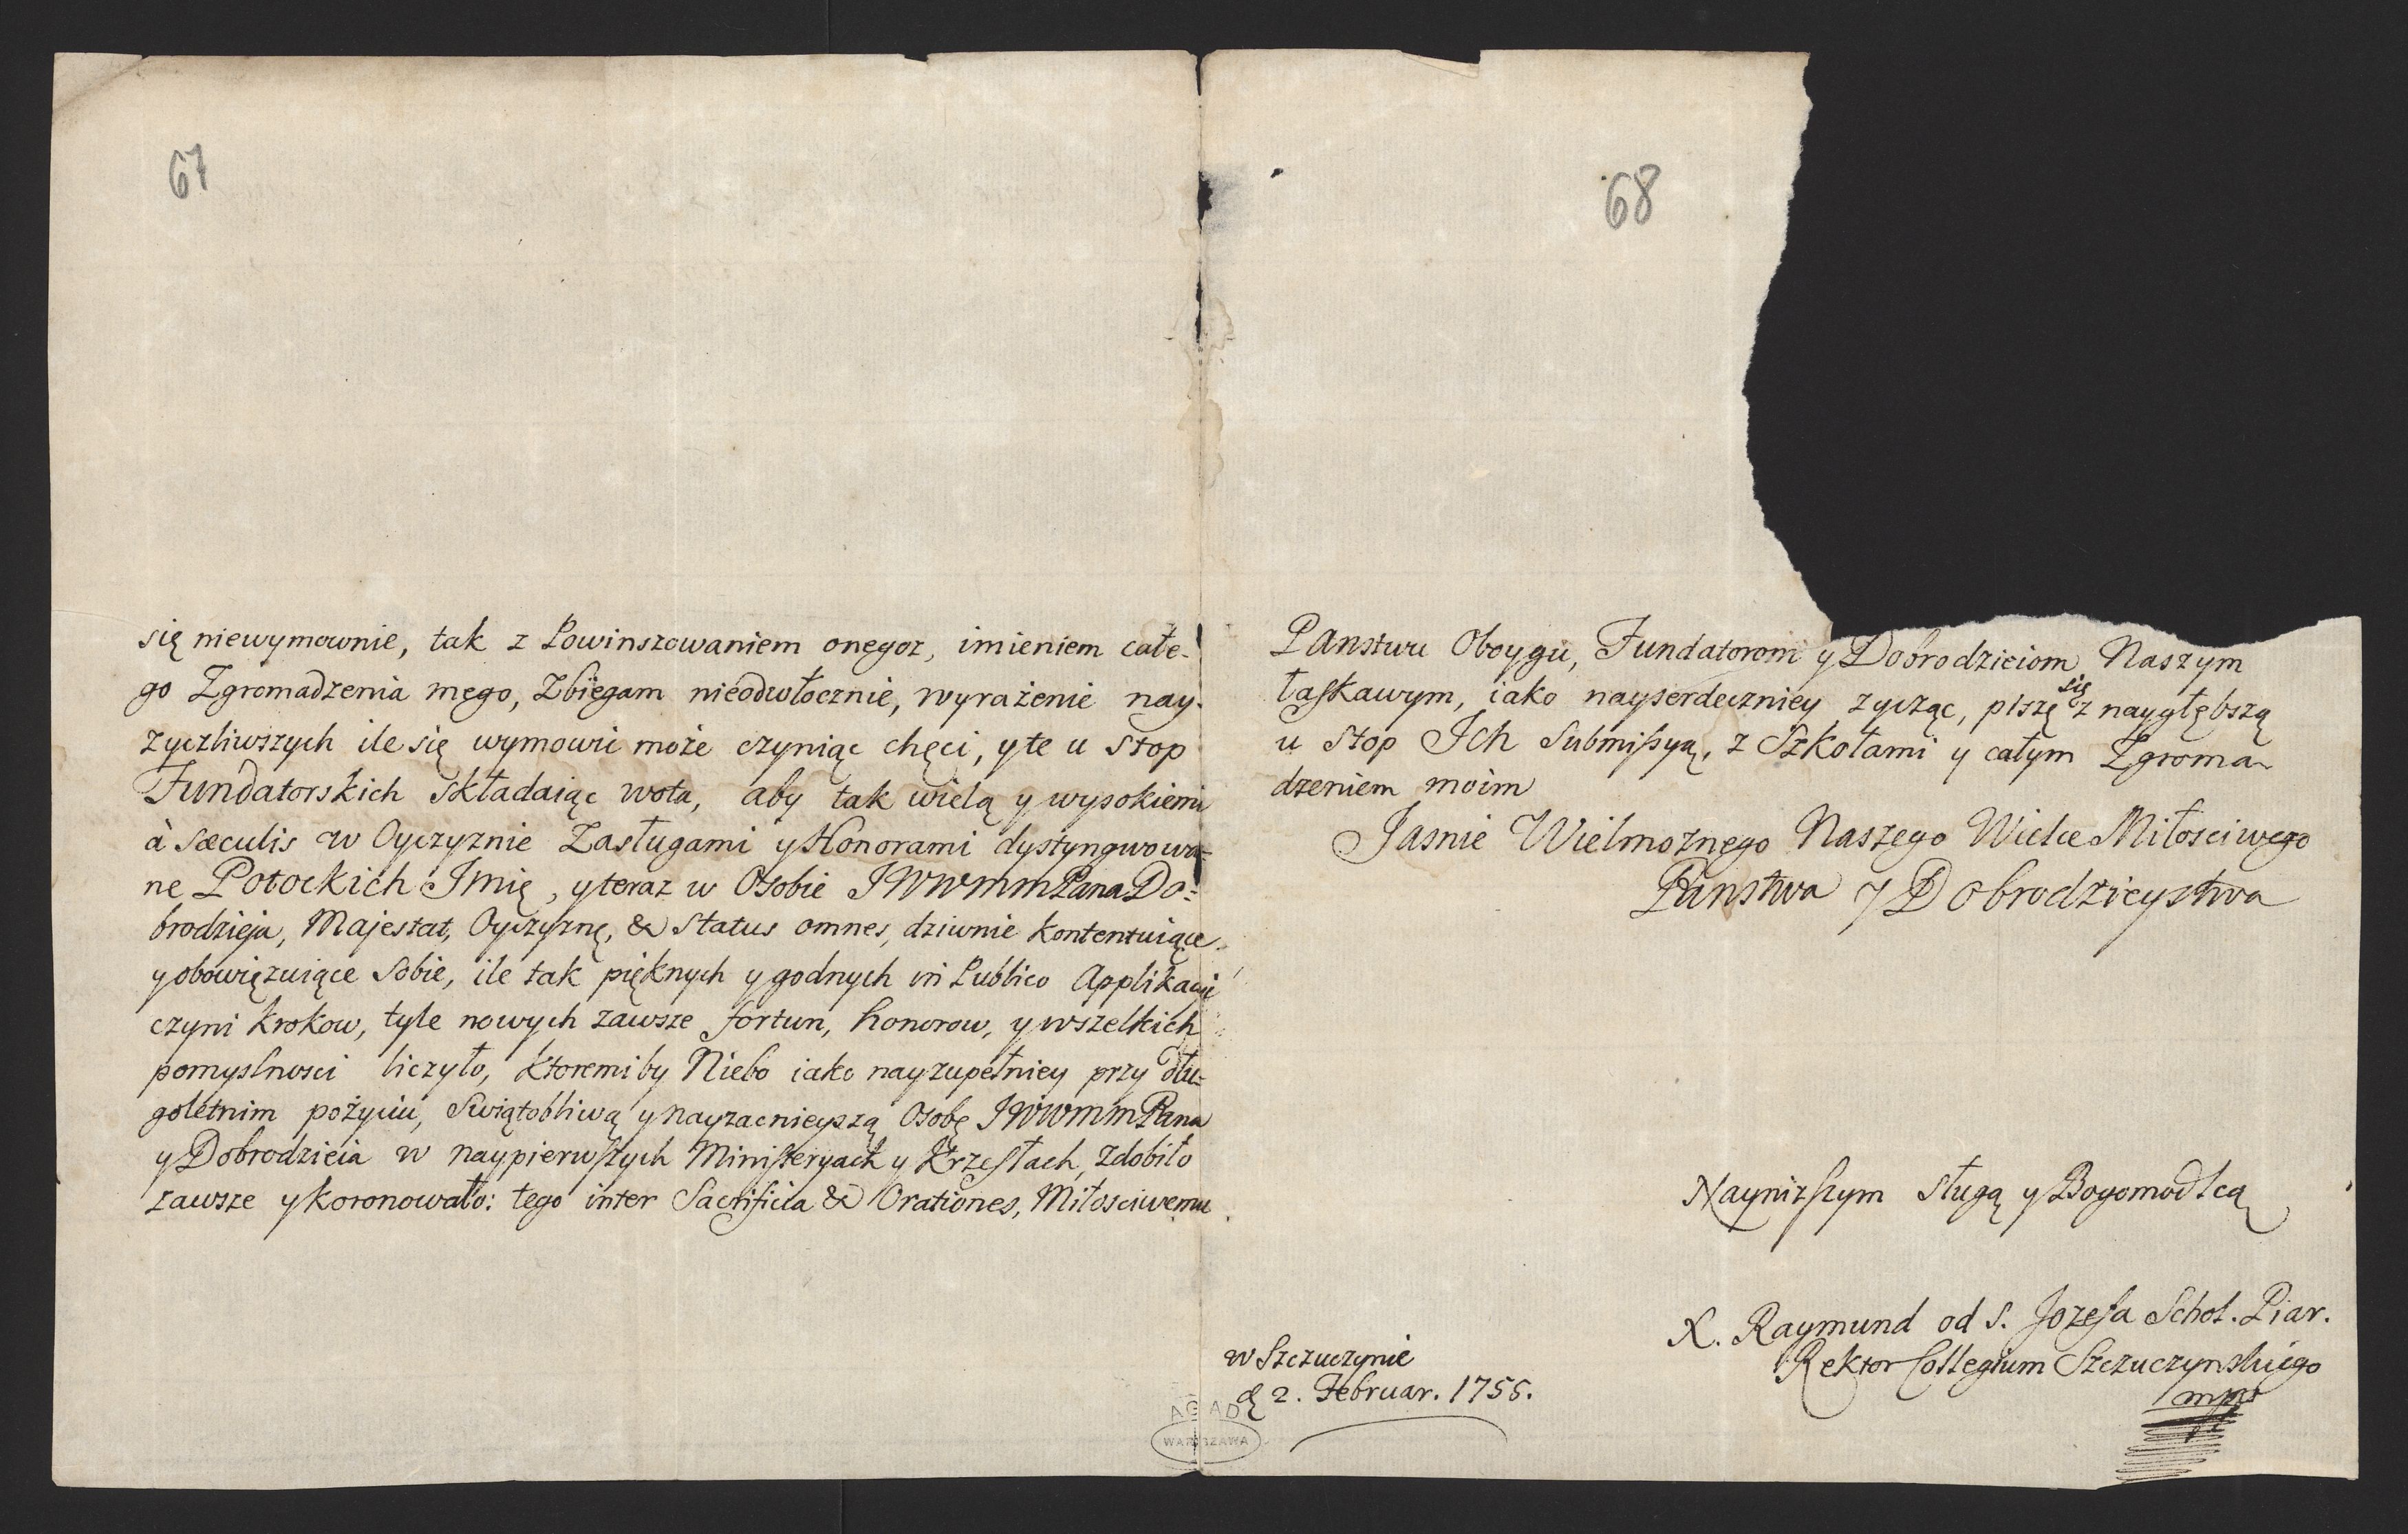 67
się niewymownie, tak z Powinszowaniem onegoż, imieniem całe-
go Zgromadzenia mego, Zbiegam nieodwłocznie, wyrażenie nay-
życzliwszych ile się wymowić może czyniąc chęci, y te u stop
Fundatorskich składaiąc wota, aby tak wielą y wysokiemi
à sæculis w Oyczyznie Zasługami y Honorami dystyngwowa-
ne Potockich Imię, y teraz w Osobie JWWmmPana Do-
brodzieja, Majestat, Oyczyznę, & status omnes, dziwnie kontentuiące
y obowięzuiące sobie, ile tak pięknych y godnych in Publico Applikacyi
czyni krokow, tyle nowych zawsze fortun, honorow, y wszelkich
pomyslnosci liczyło, ktoremi by Niebo iako nayzupełniey przy dłu-
goletnim pożyciu, Swiątobliwą y nayzacnieyszą Osobę JWWmmPana
y Dobrodzieia w naypierwszych Ministeryach y Krzesłach, zdobiło
zawsze y koronowało: tego inter Sacrificia & Orationes, Miłosciwemu
68
Panstwu Oboygu, Fundatorom y Dobrodzieiom Naszym
łaskawym, iako nayserdeczniey zycząc, piszę się z naygłębszą
u stop Ich Submissyą, z Szkołami y całym Zgroma-
dzeniem moim
Jasnie Wielmożnego Naszego Wielce Miłosciwego
Państwa y Dobrodzieystwa
Nayniższym sługą y Bogomodlcą
X. Raymund od S. Jozefa Schol. Piar.
Rektor Collegium Szczuczynskiego
mpr
w Szczuczynie
d 2. Februar. 1755.
AGAD
WARSZAWA